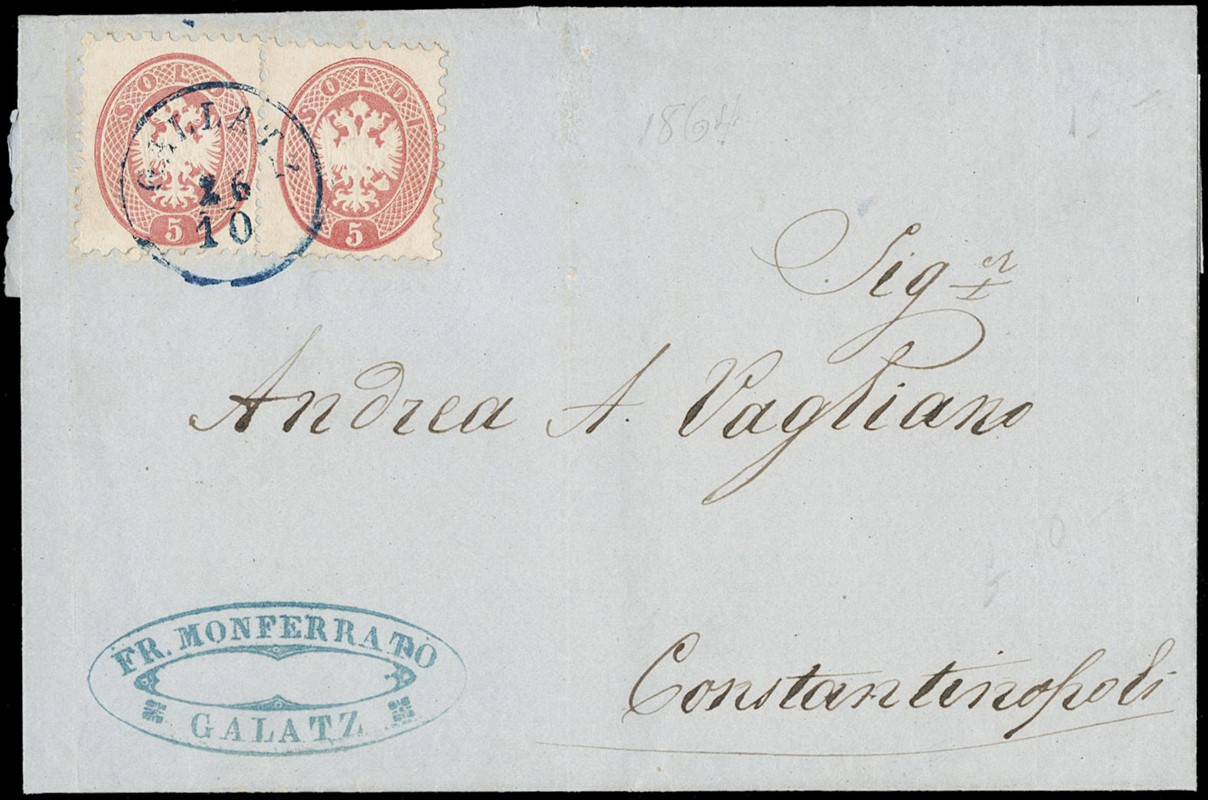 SOLDI
5
SOLDI
5
GALLATZ
26
10
1864
15
Sigr
Andrea A. Vagliano
10
Constantinopoli
FR. MONFERRATO
GALATZ